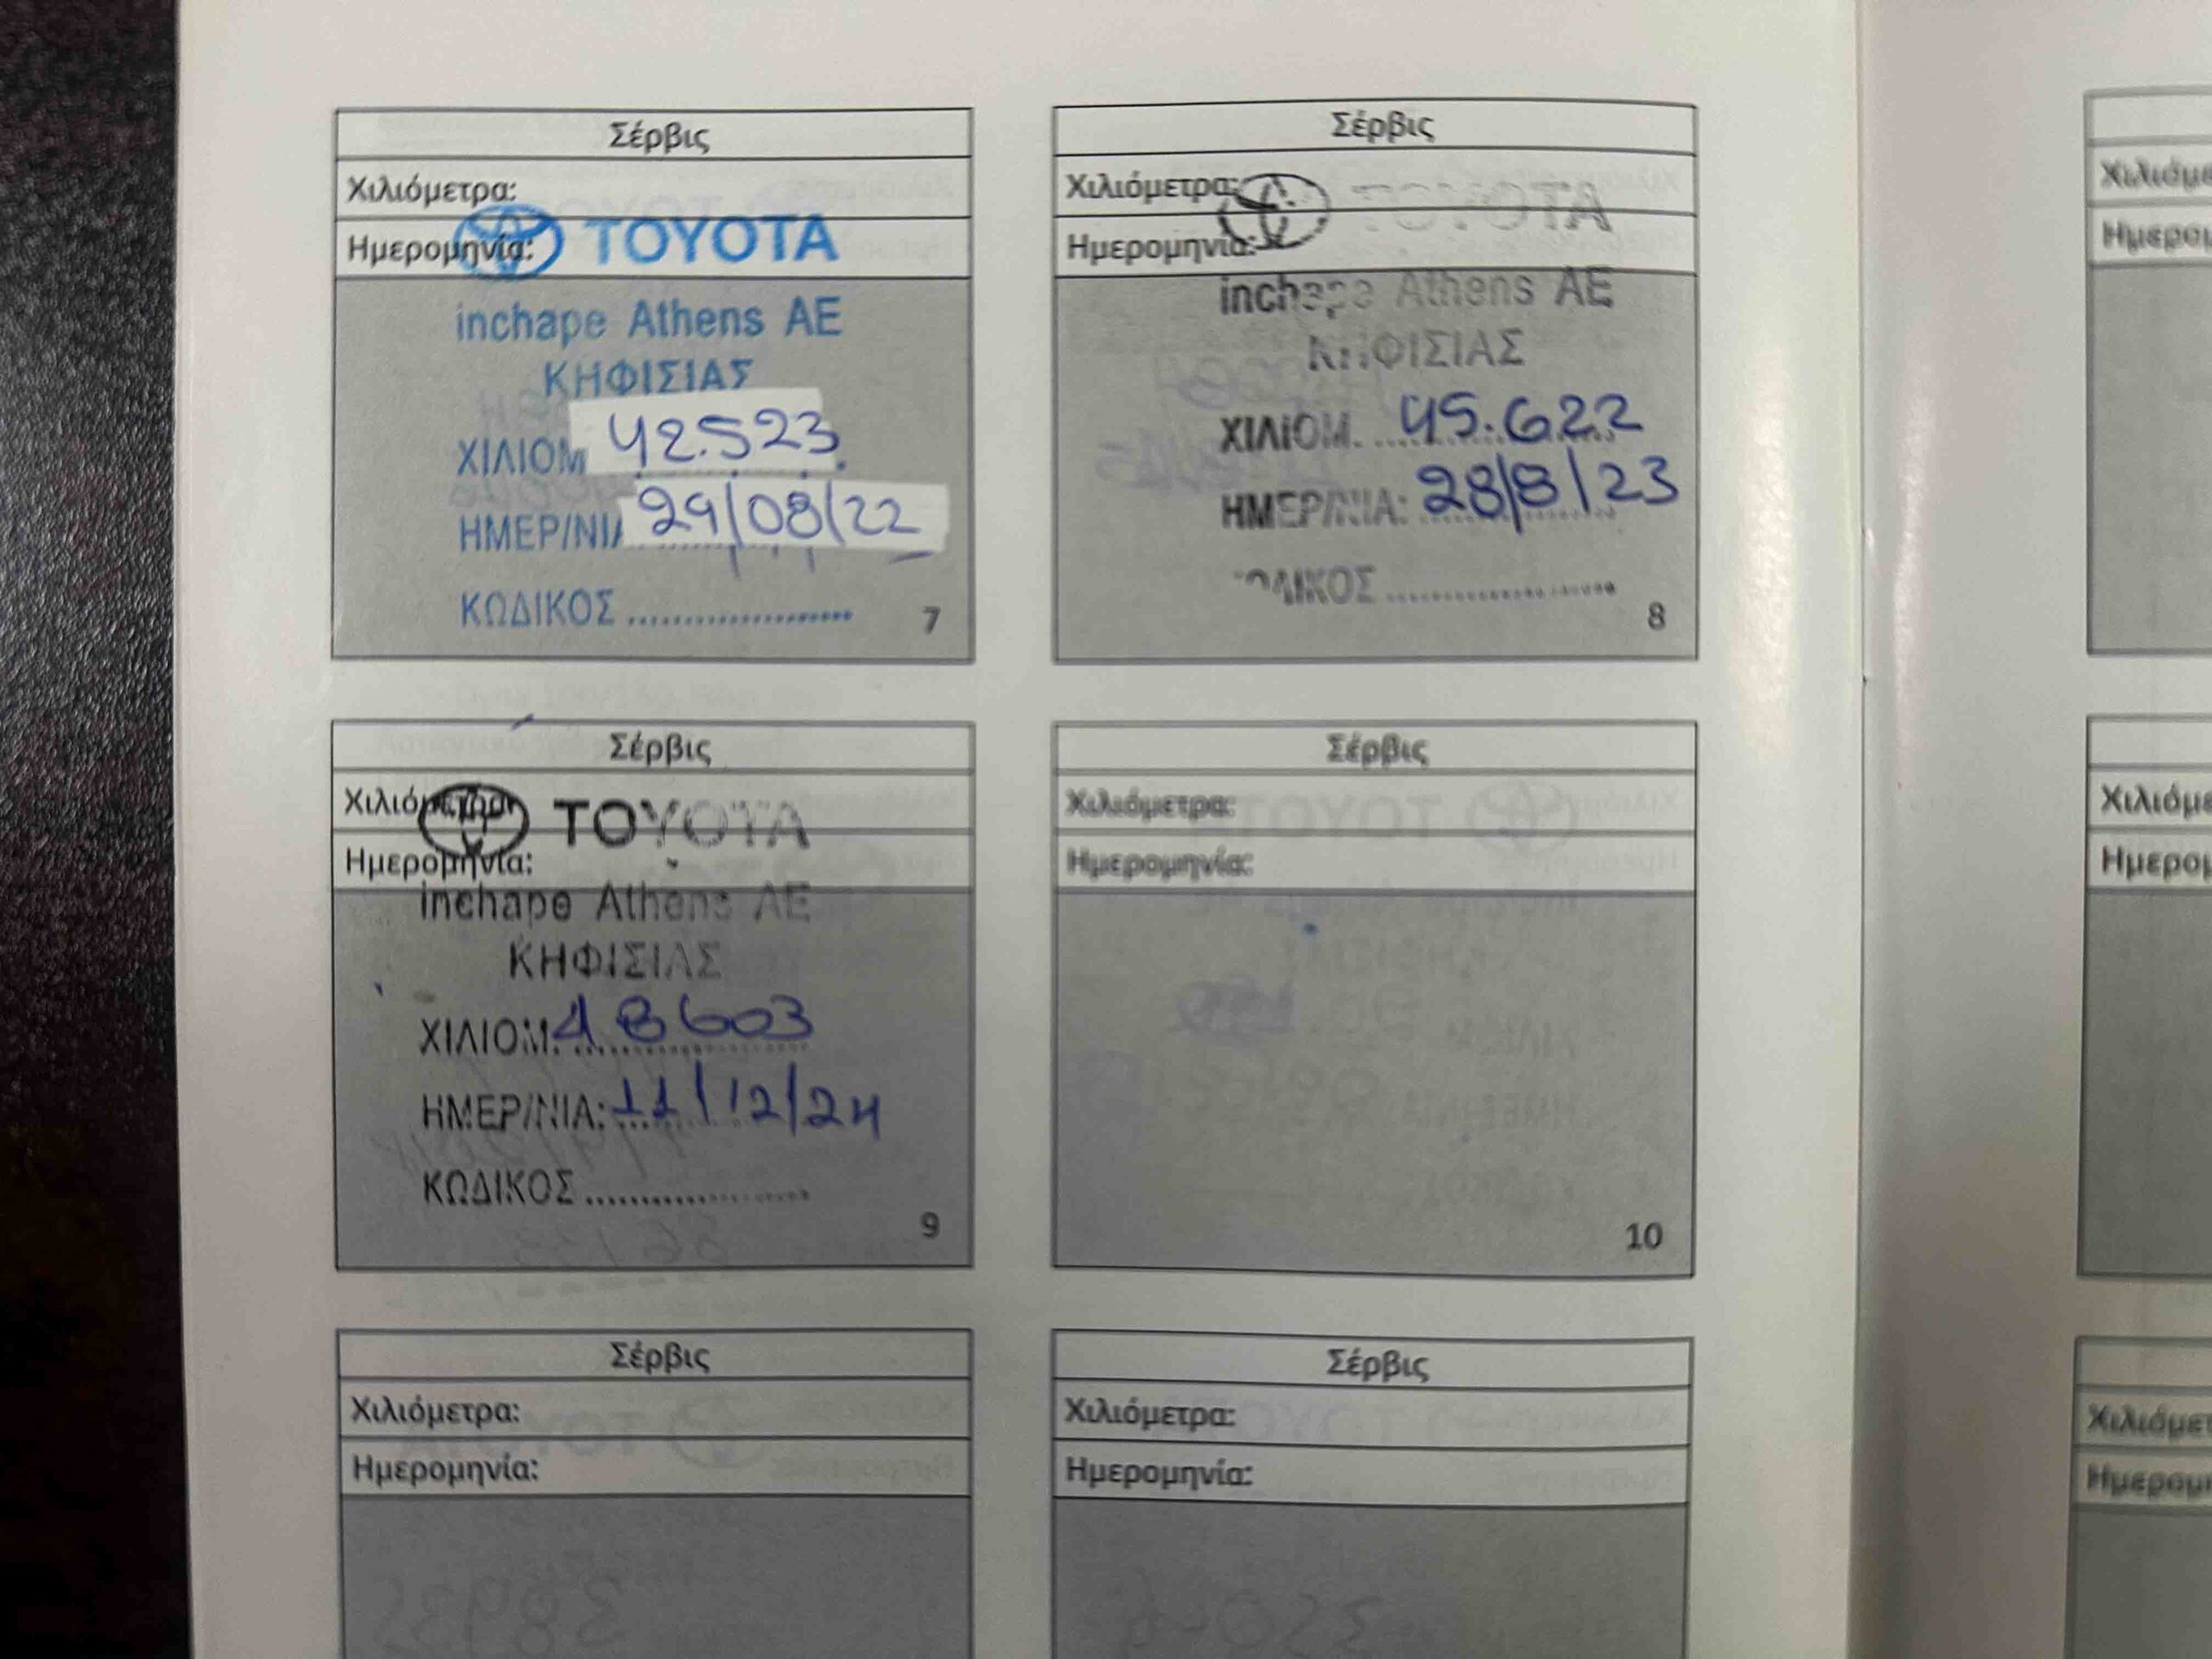 Σέρβις
Χιλιόμετρα:
Ημερομηνία:
TOYOTA
inchape Athens AE
ΚΗΦΙΣΙΑΣ
ΧΙΛΙΟΜ 42.523
ΗΜΕΡ/ΝΙΑ 29/08/22
ΚΩΔΙΚΟΣ ....................
7
Σέρβις
Χιλιόμετρα:
Ημερομηνία:
TOYOTA
inchape Athens AE
ΚΗΦΙΣΙΑΣ
ΧΙΛΙΟΜ. 45.622
ΗΜΕΡ/ΝΙΑ: 28/8/23
ΚΩΔΙΚΟΣ ....................
8
Σέρβις
Χιλιόμετρα:
Ημερομηνία:
TOYOTA
inchape Athens AE
ΚΗΦΙΣΙΑΣ
ΧΙΛΙΟΜ. 48603
ΗΜΕΡ/ΝΙΑ: 11/12/24
ΚΩΔΙΚΟΣ ....................
9
Σέρβις
Χιλιόμετρα:
Ημερομηνία:
10
Σέρβις
Χιλιόμετρα:
Ημερομηνία:
Σέρβις
Χιλιόμετρα:
Ημερομηνία: